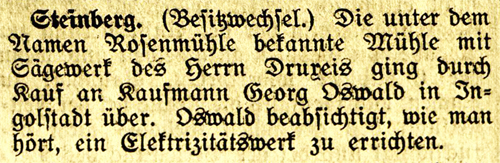 Steinberg. (Besitzwechsel.) Die unter dem
Namen Rosenmühle bekannte Mühle mit
Sägewerk des Herrn Druxeis ging durch
Kauf an Kaufmann Georg Oswald in In-
golstadt über. Oswald beabsichtigt, wie man
hört, ein Elektrizitätswerk zu errichten.